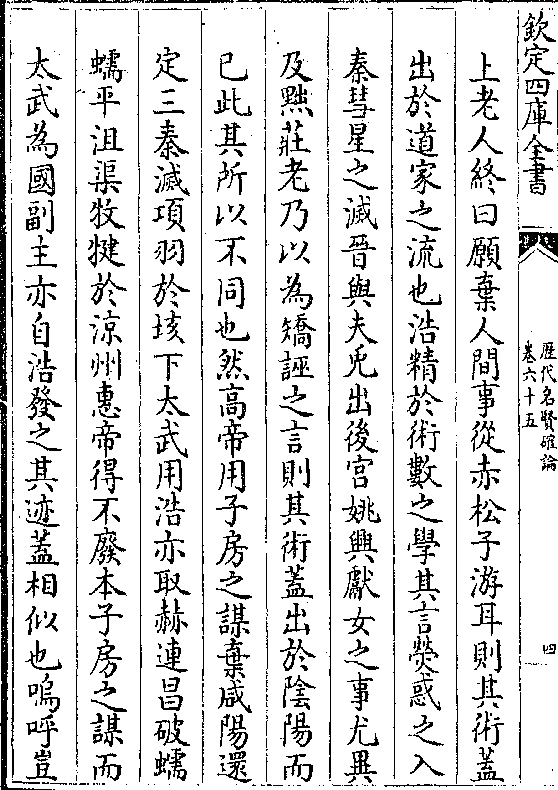 欽定四庫全書
歷代名賢確論
卷六十五
四
上老人終曰願棄人間事從赤松子游耳則其術蓋
出於道家之流也浩精於術數之學其言熒惑之入
秦彗星之滅晉與夫兎出後宮姚興獻女之事尤異
及黜莊老乃以為矯誣之言則其術蓋出於陰陽而
已此其所以不同也然高帝用子房之謀棄咸陽還
定三秦滅項羽於垓下太武用浩亦取赫連昌破蠕
蠕平沮渠牧犍於涼州惠帝得不廢本子房之謀而
太武為國副主亦自浩發之其迹蓋相似也嗚呼豈